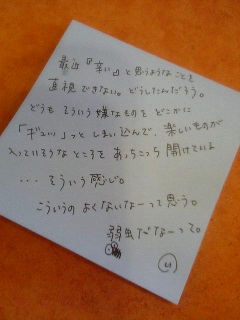 最近『辛い』と思うようなことを
直視できない。どうしたんだろう。
どうもそういう嫌なものをどこかに
「ギュッ」っとしまい込んで、楽しいものが
入っていそうなところをあちこち開けている
…そういう感じ。
こういうのよくないなーって思う。
弱虫だなーって。